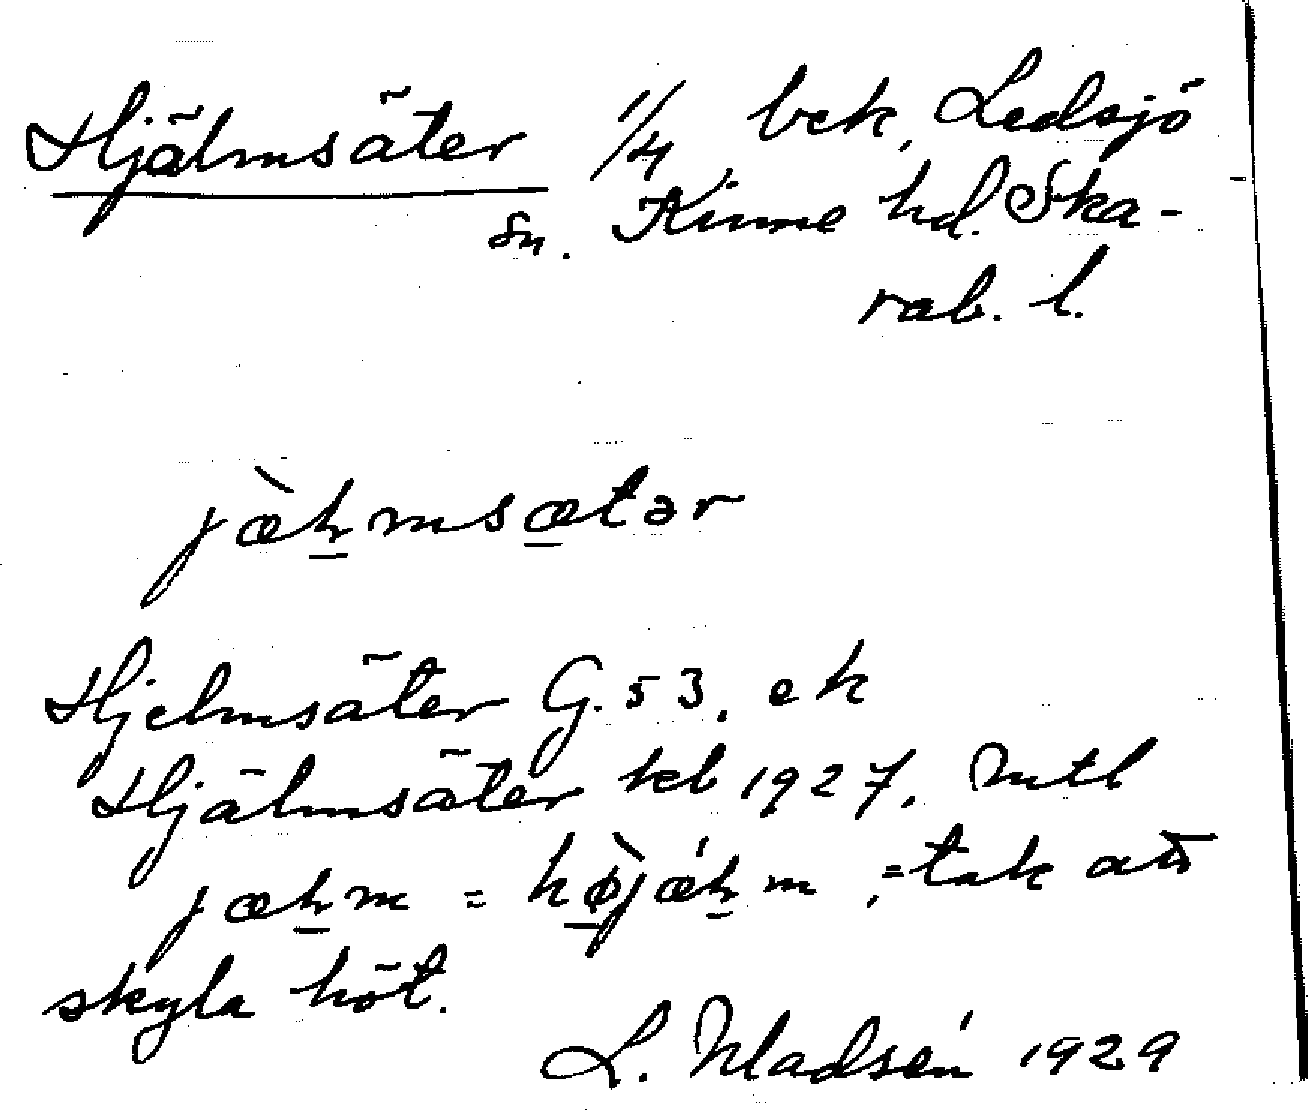 Hjälmsäter 1/4 bek, Ledsjö
sn. Kinne hd. Ska-
rab. l.
jæ̀ḻmsæ̱tər
Hjelmsäter G. 53, ek
Hjälmsäter kb 1927, mtl
jæḻm = hø̱̀jǽḻm, = tak att
skyla höt.
L. Madsén 1929